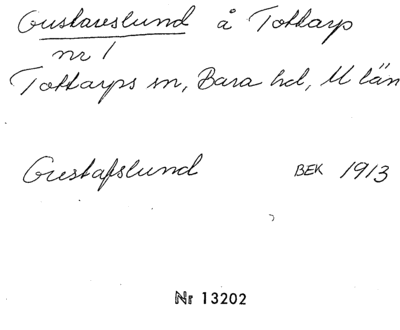 Gustavslund å Tottarp
nr 1
Tottarps sn, Bara hd, M län
Gustafslund BEK 1913
Nr 13202